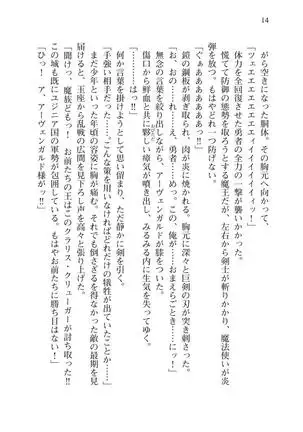 14
がら空きになった胴体。その胸元へ向かって、
「ツェエエエエエエエイイイイイィッ！」
体力を全回復させた勇者の全力の一撃が襲いかかった。
慌てて防御の態勢をとろうとする魔王だが、左右から剣士が斬りかかり、魔法使いが炎
弾を放つ。もはやどれ一つ防げない。
「ぐぁああああああっ!!」
鎧の鋼板が剥ぎ取られ、肉が炎に焼かれる。胸元に深々と巨剣の刃が突き刺さった。
「お、おの……れ、勇者……め……。この、俺が……おまえらごとき……にっ！」
無念の言葉を絞り出しながら、アーヴェンガルドが膝をついた。
傷口から鮮血と共に夥しい瘴気が噴き出し、みるみる内に生気を失ってゆく。
「…………」
何か言葉を掛けようとして思い留まり、ただ静かに剣を引く。
「手強い相手だった……。こんな策を用いなければどれだけの犠牲が出ていたことか……」
まだ少年といった年頃の容姿に胸が痛む。それでも倒さざるを得なかった敵の最期を見
届けると、玉座から乱戦の広間を見下ろし声を高々と張り上げた。
「聞けっ、魔族ども！　お前たちの王はこのクラリス・クリューガーが討ち取った!!
この城も既にユジニア国の軍勢が包囲している。もはやお前たちに勝ち目はない！」
「ひっ！　ア、アーヴェンガルド様がッ!!」